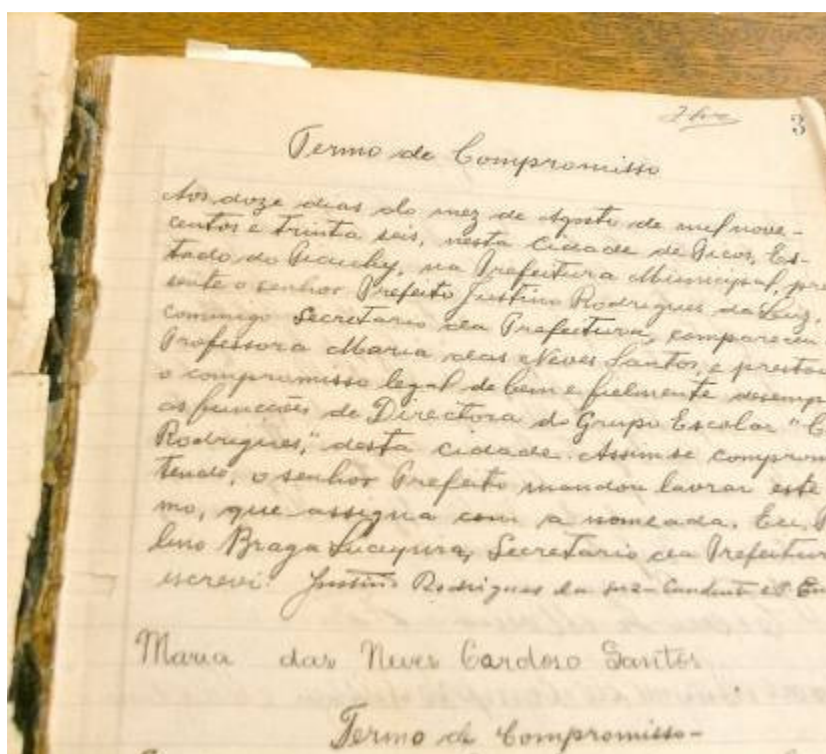 3
Termo de Compromisso
Aos doze dias do mez de Agosto de mil nove-
centos e trinta seis, nesta cidade de Picos, Es-
tado do Piauhy, na Prefeitura Municipal, pre
sente o senhor Prefeito Justino Rodrigues da Luz,
comingo Secretario da Prefeitura, compareceu
Professora Maria das Neves Santos, e prestou
o compromisso legal de bem e fielmente desemp
as funcções de Directora do Grupo Escolar "C
Rodrigues," desta cidade. Assim se comprom
tendo, o senhor Prefeito mandou lavrar este
mo, que assigna com a nomeada. Eu,
lino Braga Secretario da Prefeitur
escrevi. Justino Rodrigues da
Maria das Neves Cardoso Santos
Termo de Compromisso-